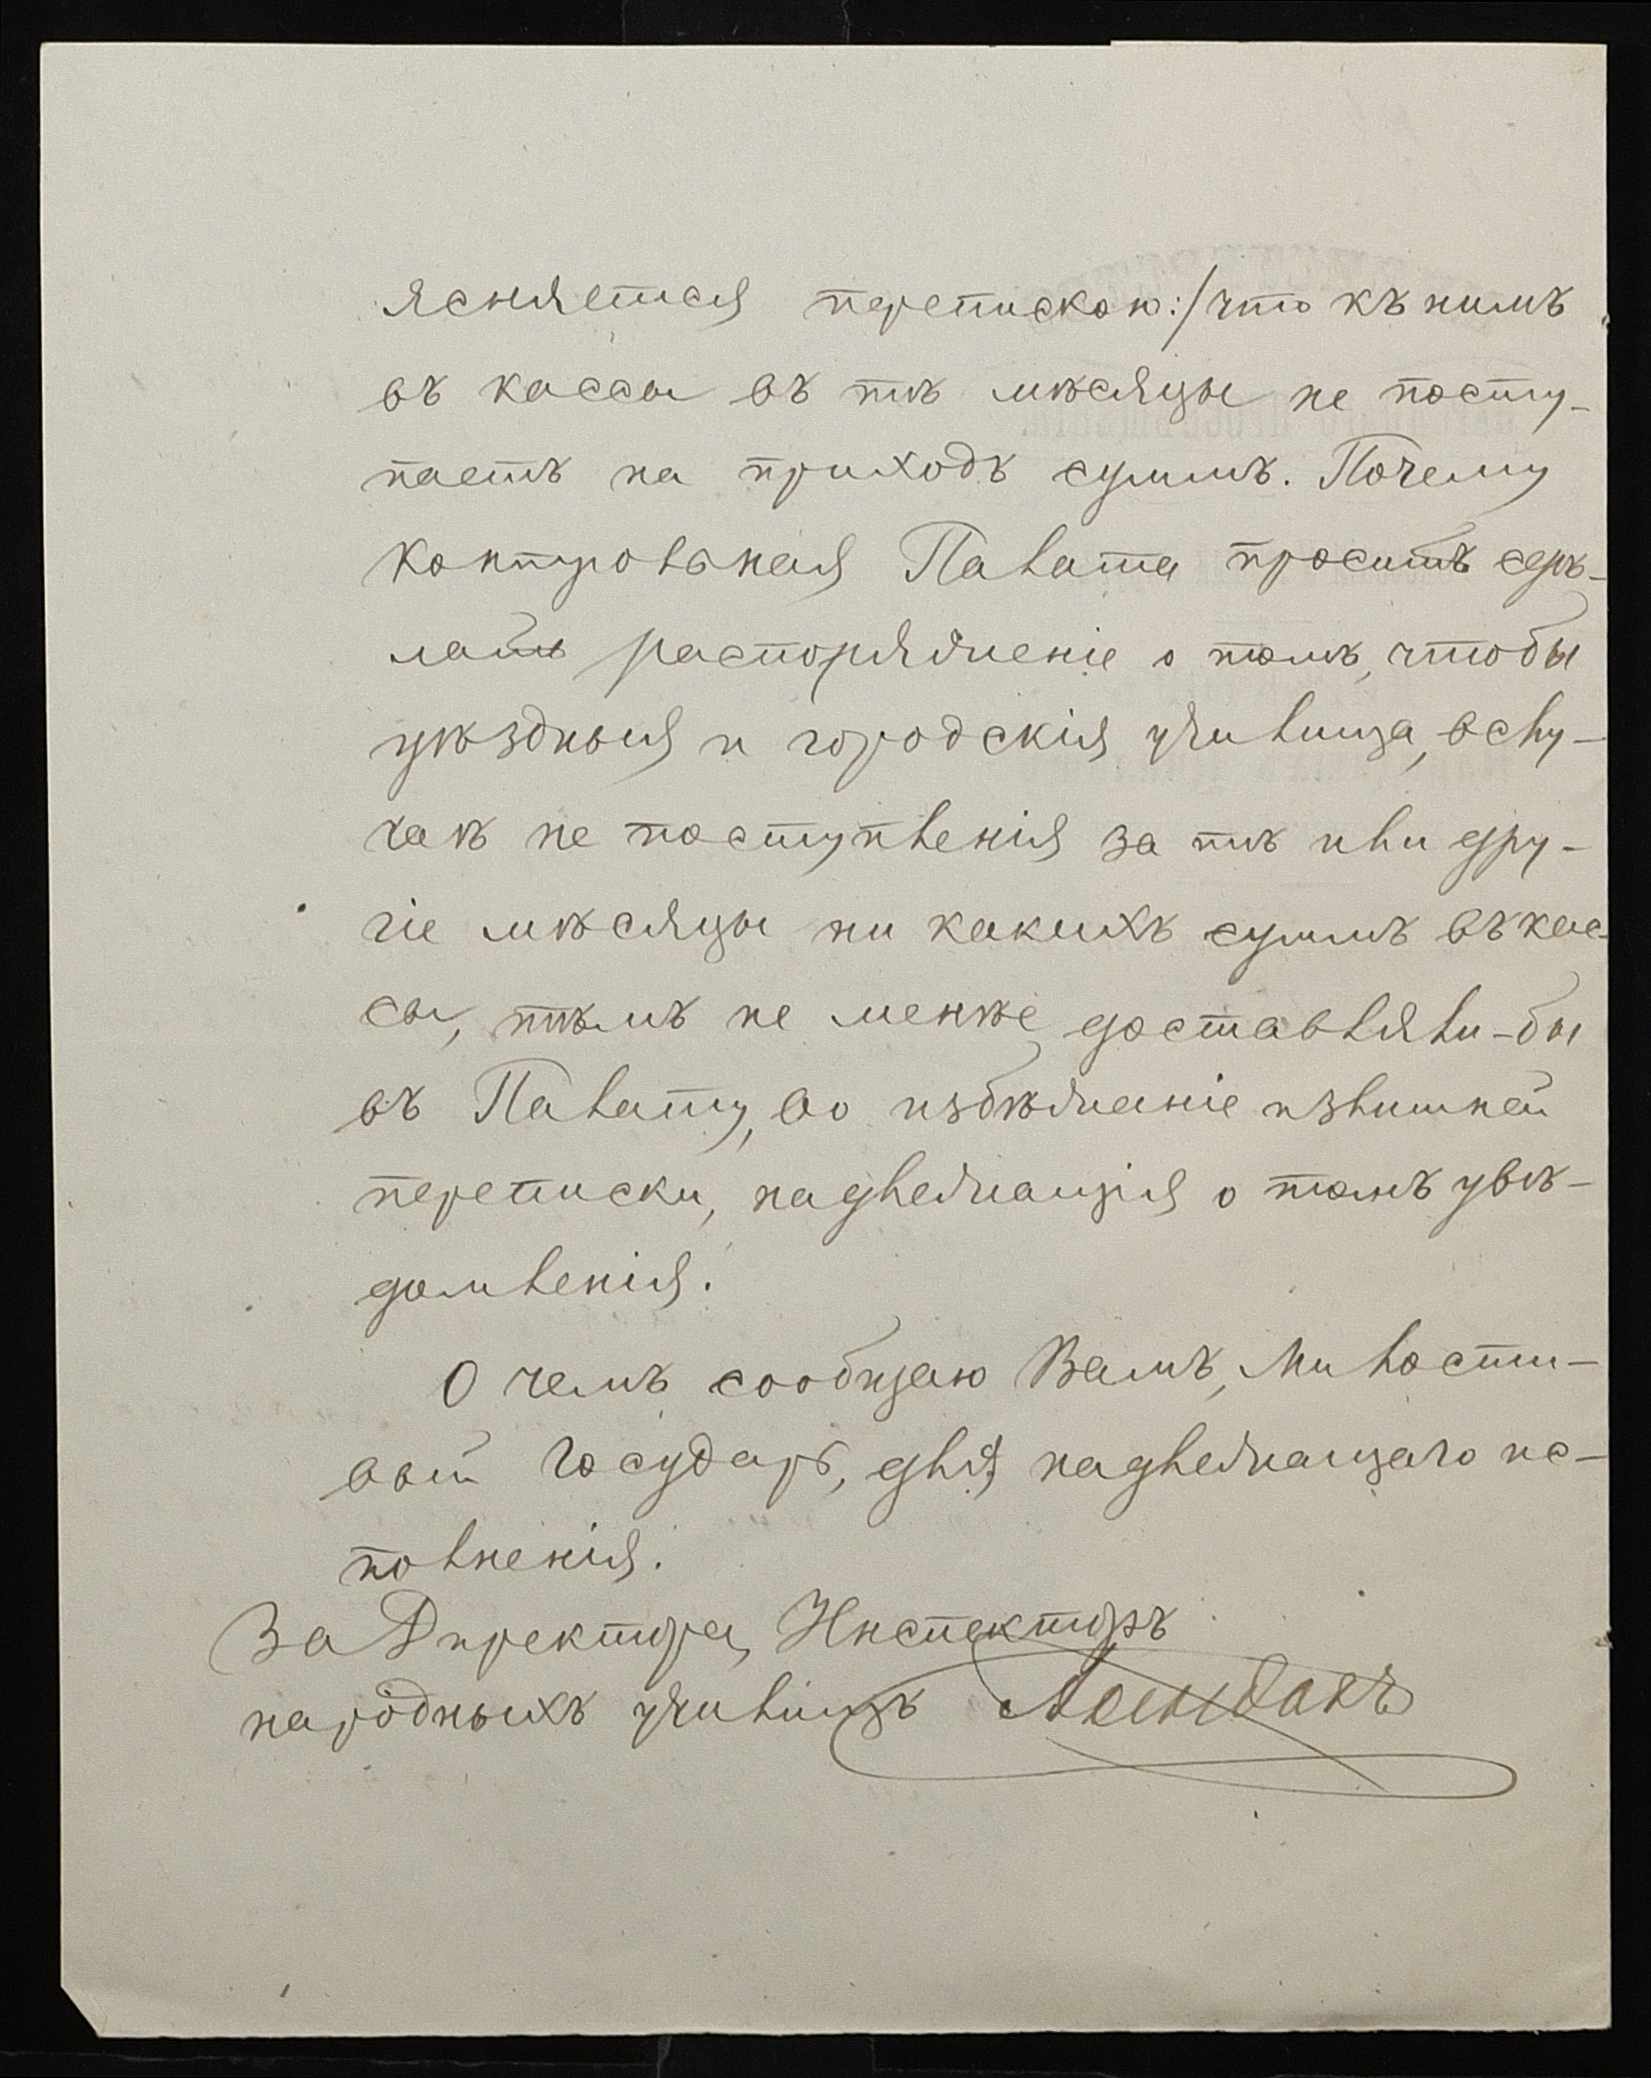 ясняется перепискою:/ что къ нимъ
въ кассы въ тѣ мѣсяцы не посту-
паетъ на приходъ суммъ. Почему
Контрольная Палата проситъ сдѣ-
лать распоряженіе о томъ, чтобы
уѣздныя и городскія училища, в слу-
чаѣ не поступленія за тѣ или дру-
гіе мѣсяцы ни какихъ суммъ въ кас-
сы, тѣмъ не менѣе доставляли-бы
въ Палату, во избѣжаніе излишней
переписки, надлежащія о томъ увѣ-
домленія.
О чемъ сообщаю Вамъ, Милости-
вый Государь, для надлежащаго ис-
полненія.
За Директора, Инспекторъ
народныхъ училищъ